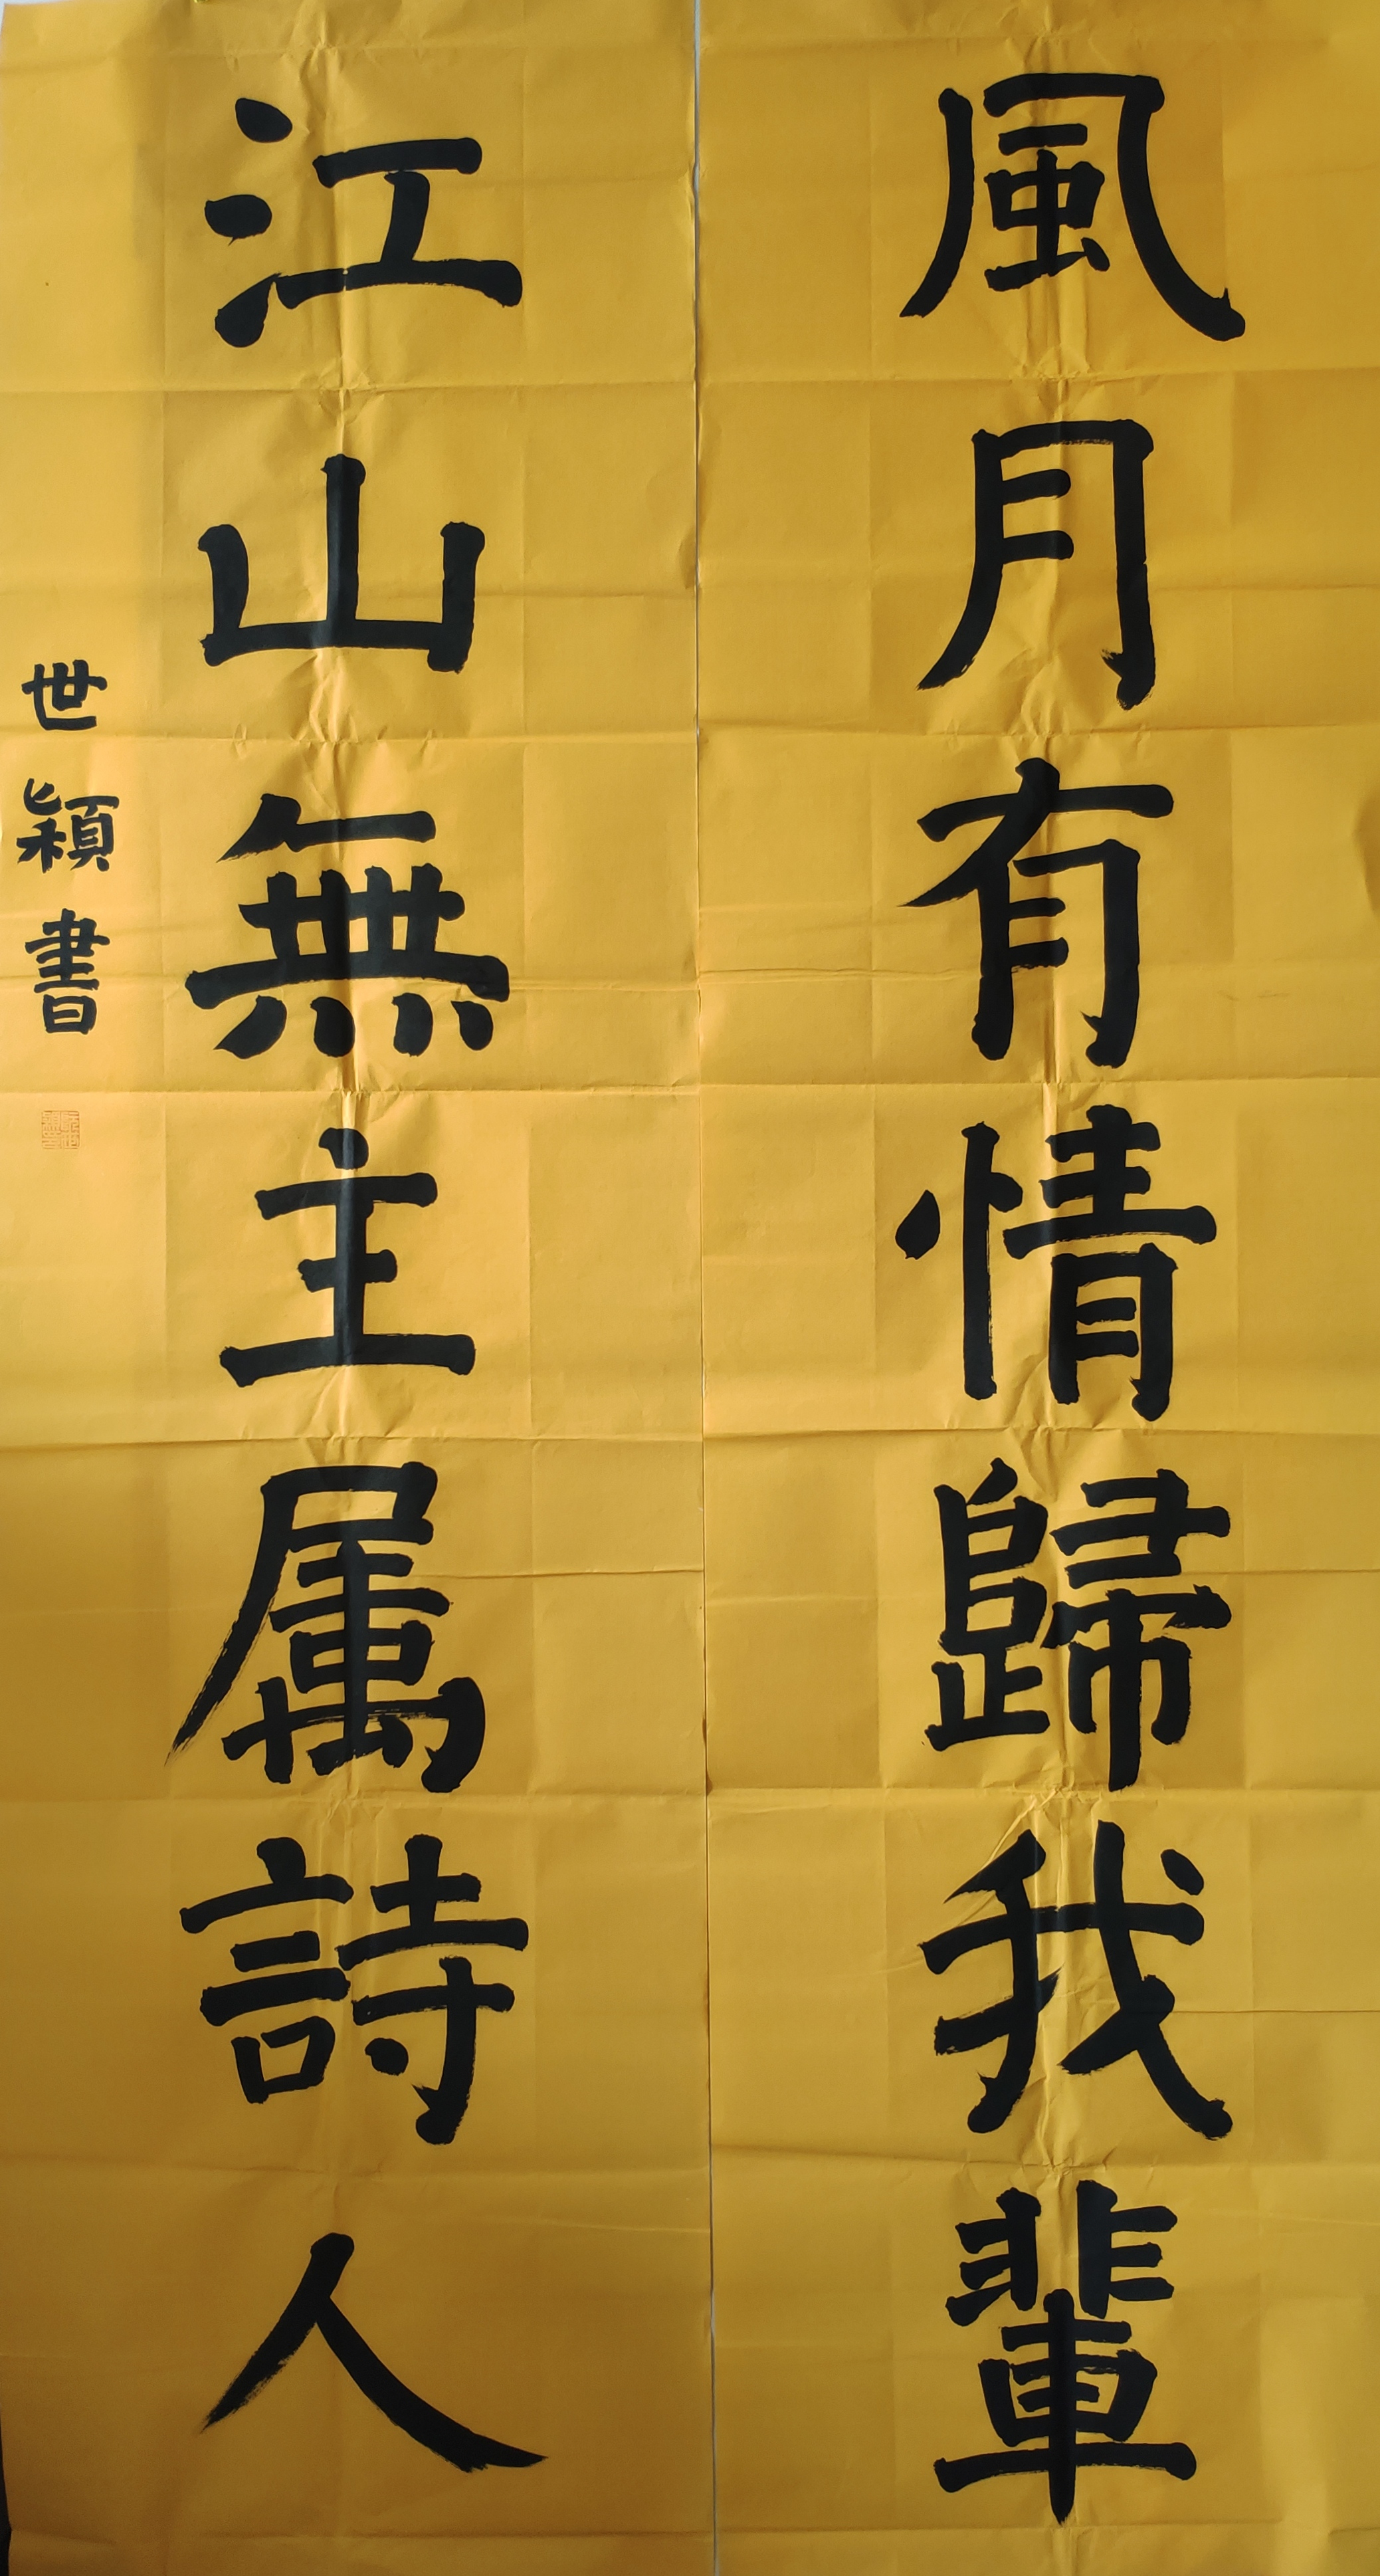 風月有情歸我輩
江山無主属詩人
世穎書